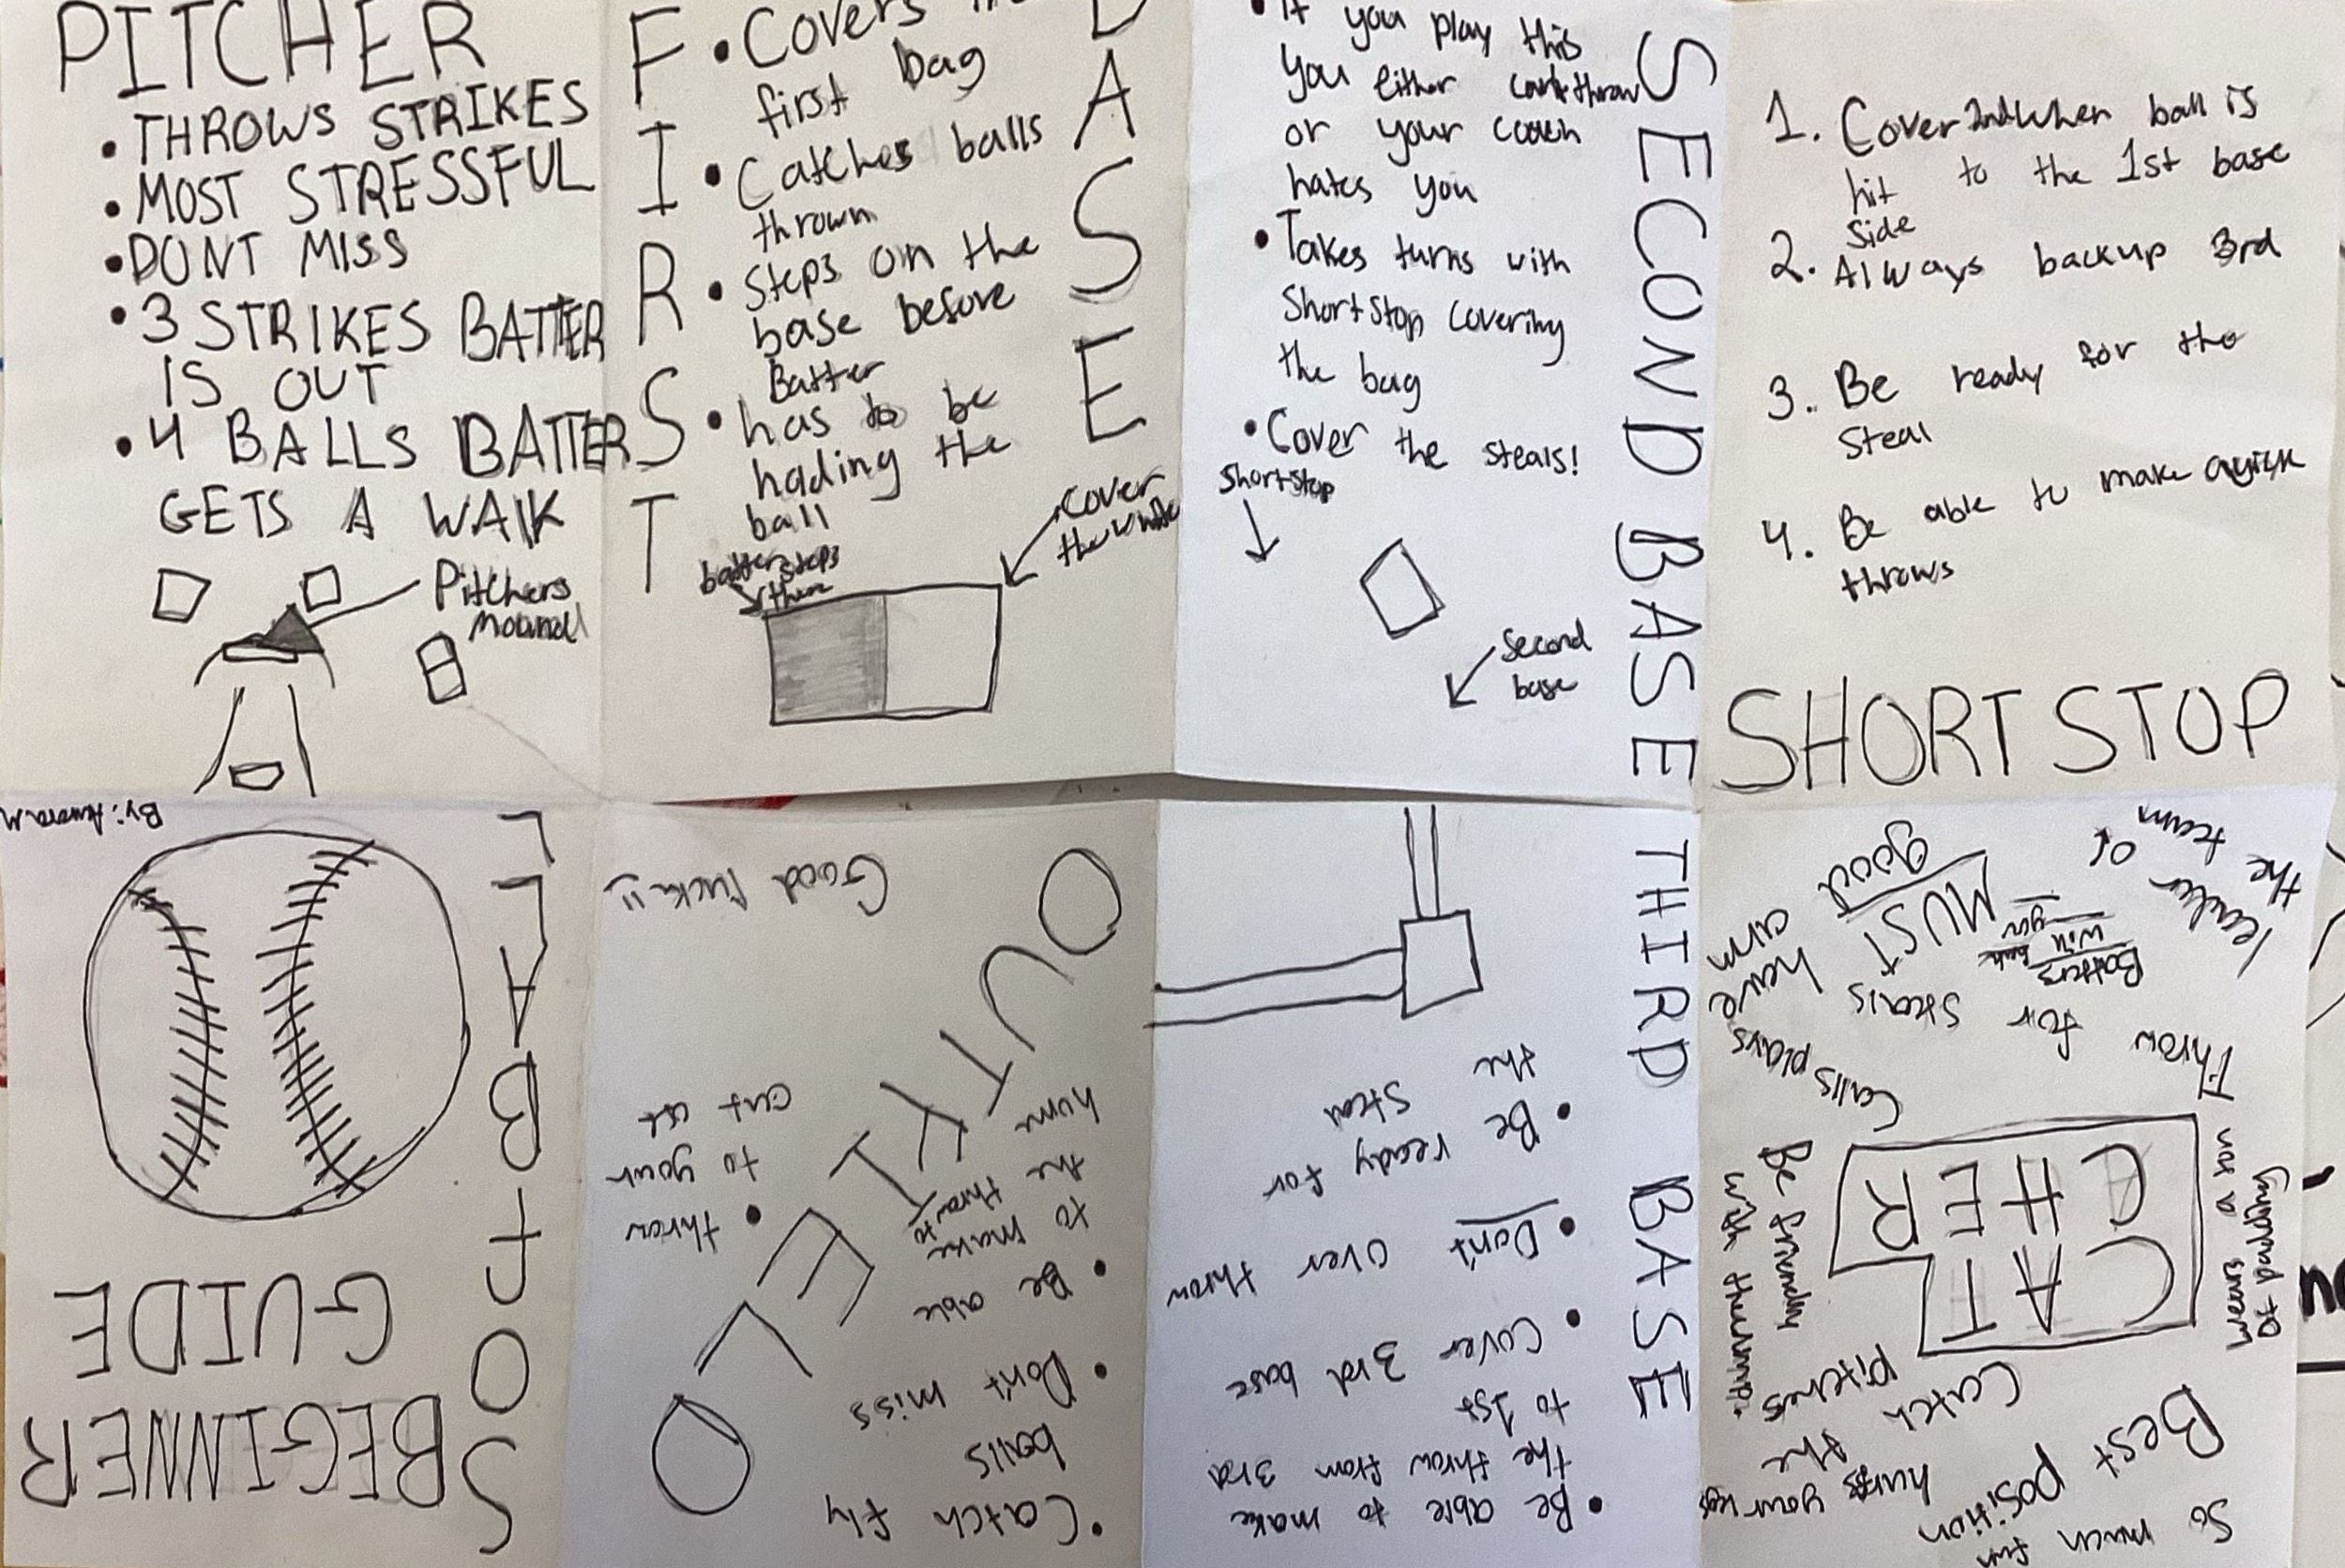 PITCHER
• THROWS STRIKES
• MOST STRESSFUL
• DONT MISS
• 3 STRIKES BATTER
IS OUT
• 4 BALLS BATTER
GETS A WALK
Pitchers
Mound
FIRST
BASE
• Covers
first bag
• Catches balls
thrown
• Steps on the
base before
Batter
• has to be
hading the
ball
batter steps
there
Cover
the white
SECOND BASE
• If you play this
you either cant throw
or your coach
hates you
• Takes turns with
Short Stop covering
the bag
• Cover the steals!
Short Stop
Second
base
1. Cover 2nd when ball is
hit to the 1st base
Side
2. Always backup 3rd
3. Be ready for the
Steal
4. Be able to make quick
throws
SHORT STOP
SOFTBALL
BEGINNER
GUIDE
By: Aurora.M
OUTFIELD
• Catch fly
balls
• Dont miss
• Be able
to make
the throw to
home
• throw
to your
cut at
Good luck!!
THIRD BASE
• Be able to make
the throw from 3rd
to 1st
• Cover 3rd base
• Dont over throw
• Be ready for
the Steal
CAT
CHER
So much fun
Best position
hurts your legs
Catch the
pitches
Wears a ton
of padding
Be friendly
with the ump.
Calls plays
Throw for steals
MUST
have good
arm
Batters
will hate
you
leader of
the team